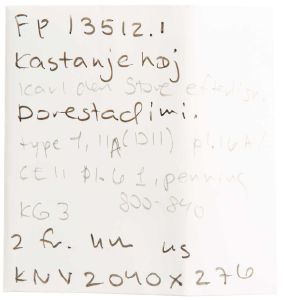 FP 13512.1
Kastanjehøj
Karl den Store efterlign.
Dorestad imi.
type 1, 11A (D11) pl. 16 A/
CE11 Pl. 6 1, penning
KG3 800-840
2 fr. hm us
KNV 2040 x 276